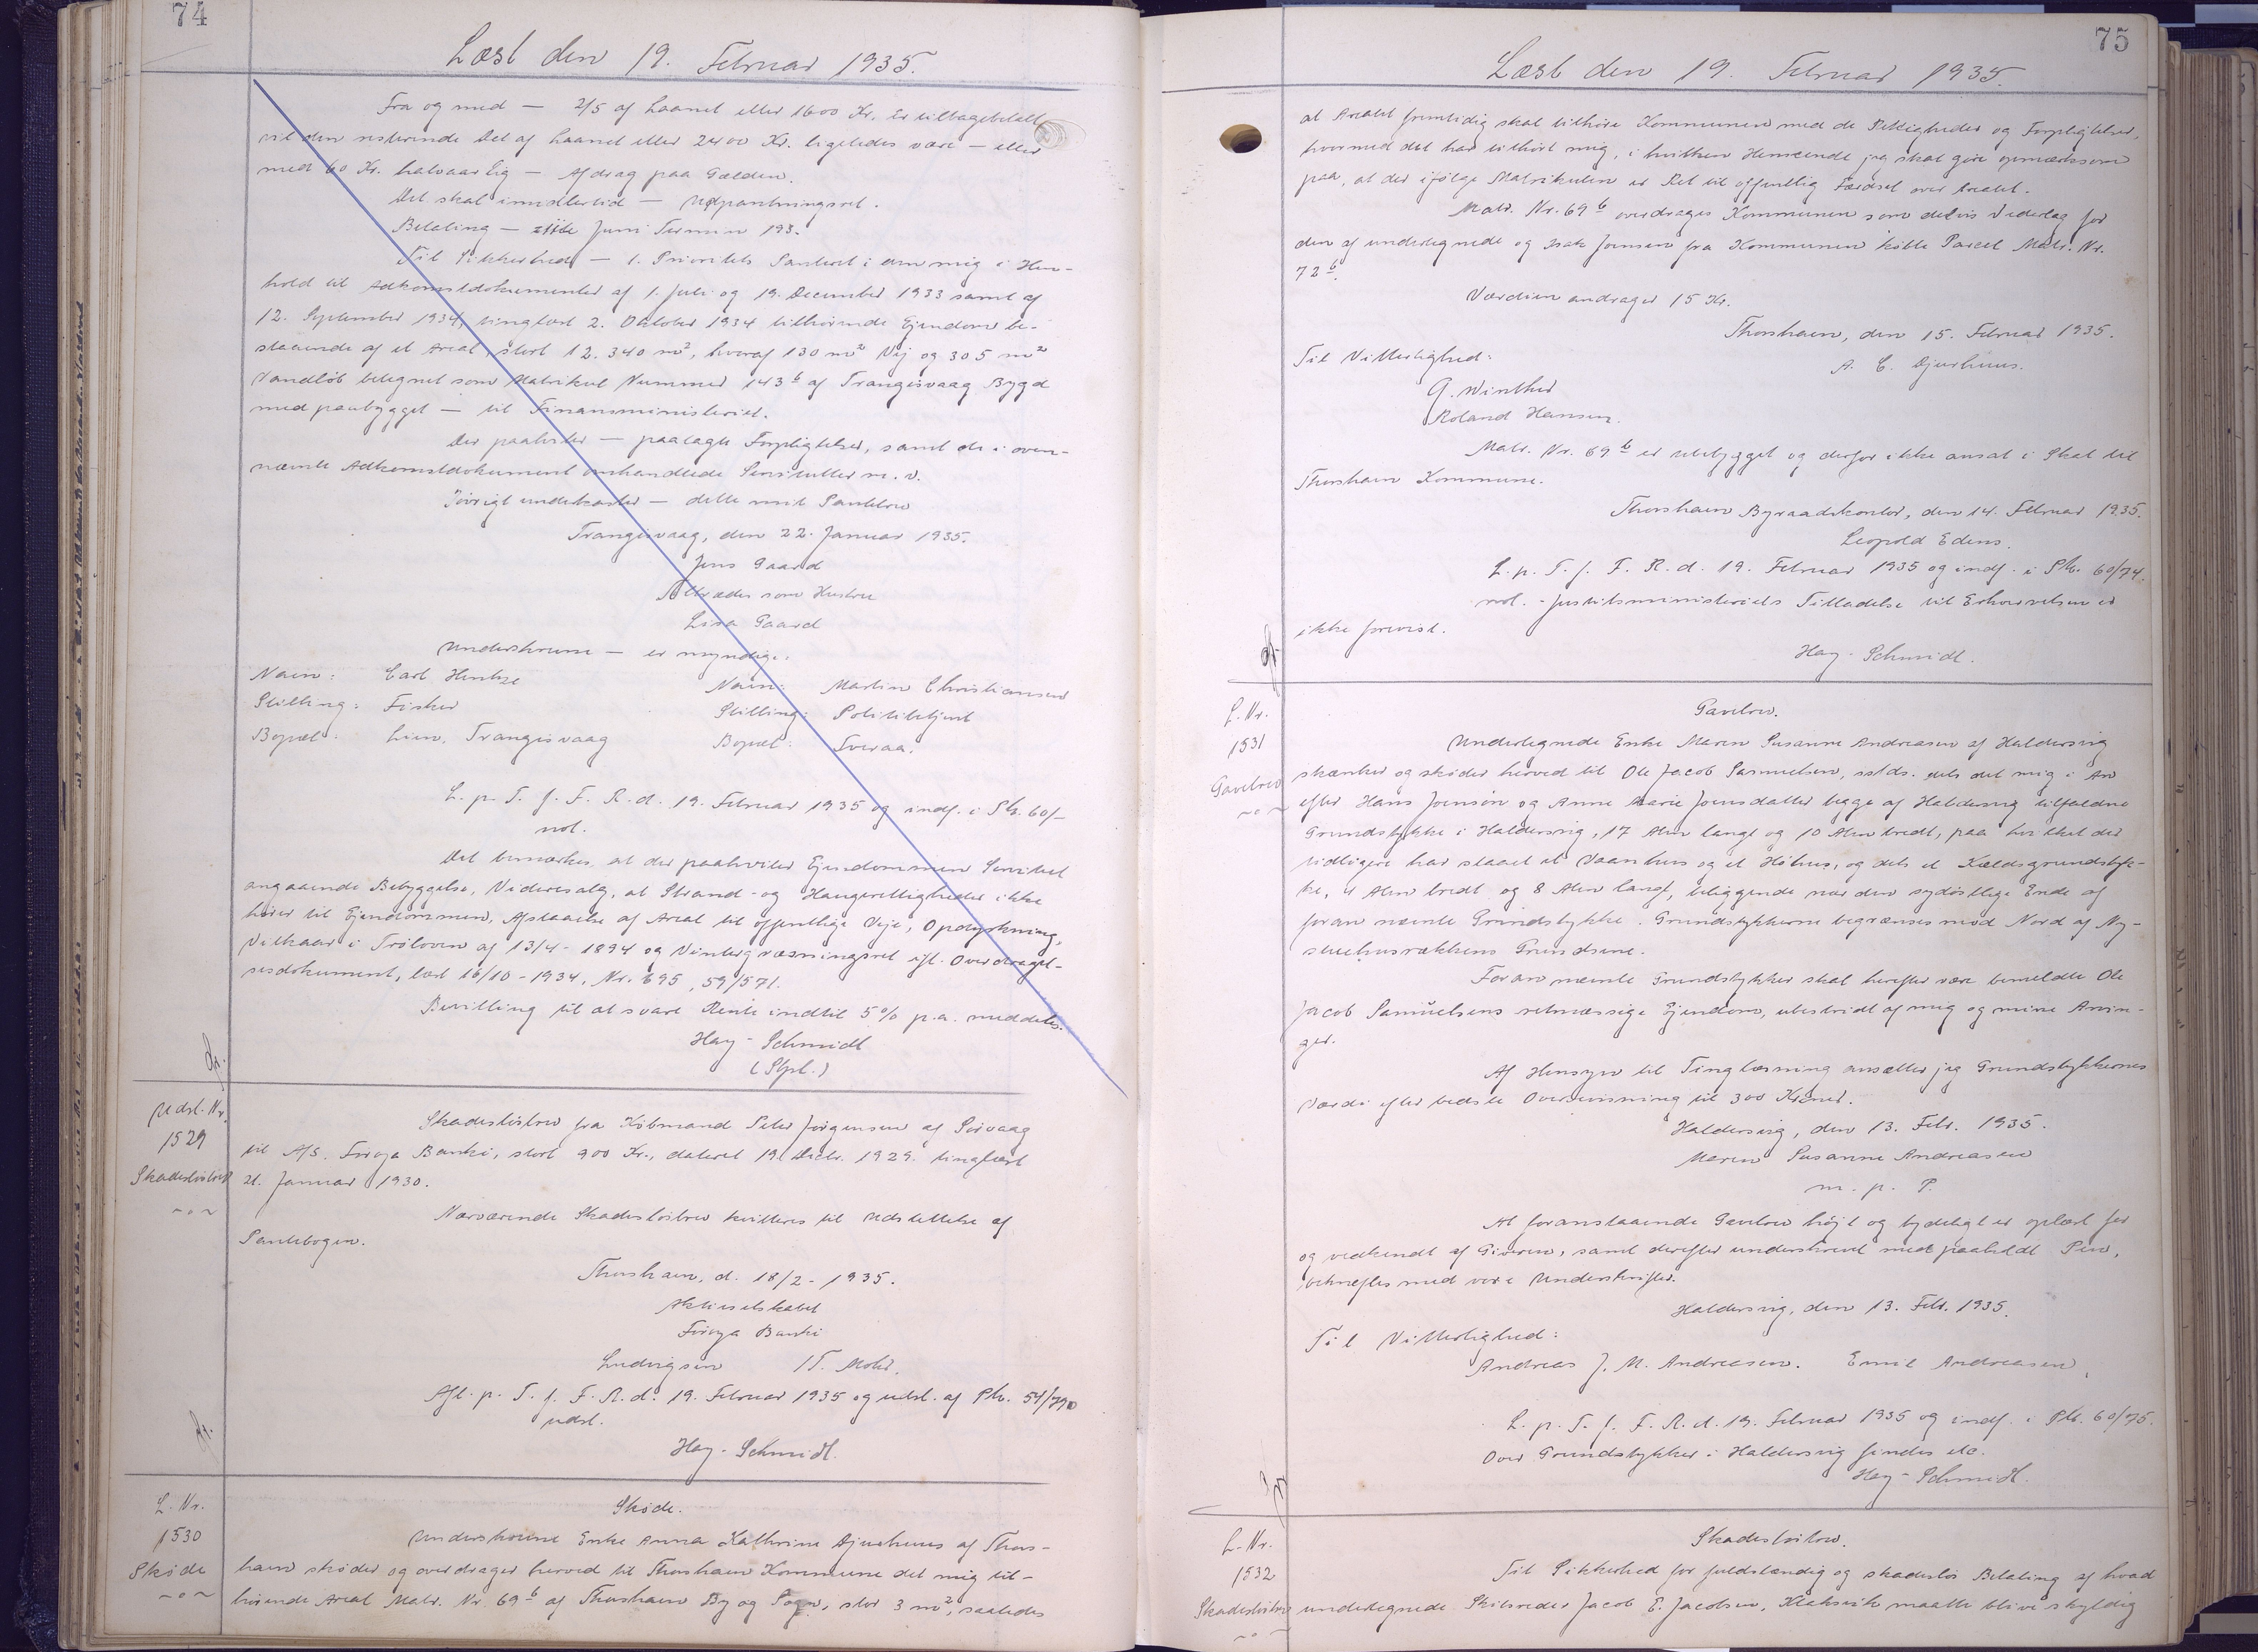 74
Læst den 19. Februar 1935.
Fra og med — 2/5 af Laanet eller 1600 Kr. er tilbagebetalt
vil den resterende Del af Laanet eller 2400 Kr. ligeledes være — eller
med 60 Kr. halvaarlig — Afdrag paa Gælden.
Det skal imidlertid — Udpantningsret.
Betaling — Juni Termin 193.
Til Sikkerhed — 1. Prioritets Panteret i den mig i Hen-
hold til Adkomstdokumenter af 1. Juli og 19. December 1933 samt af
12. September 1934, tinglæst 2. Oktober 1934 tilhørende Ejendom be-
staaende af et Areal, stort 12.340 m², hvoraf 130 m² Vej og 305 m²
Vandløb betegnet som Matrikul Nummer 143 b af Trangisvaag Bygd
med paabygget — til Finansministeriet.
Der paahviler — paalagte Forpligtelser, samt de i oven-
nævnte Adkomstdokument omhandlede Servitutter m. v.
Iøvrigt underkaster — dette mit Pantebrev
Trangisvaag, den 22. Januar 1935.
Jens Gaard
Tiltrædes som Hustru
Lisa Gaard
Underskrevne — er myndige.
Navn: Carl Hentze Navn: Martin Christiansen
Stilling: Fisker Stilling: Politibetjent
Bopæl: Live, Trangisvaag Bopæl: Tveraa.
L. p. T. f. F. R. d. 19. Februar 1935 og indf. i Pb. 60/—
not.
Det bemærkes, at der paahviler Ejendommen Servitut
angaaende Bebyggelse, Videresalg, at Strand- og Haugerettigheder ikke
hører til Ejendommen, Afstaaelse af Areal til offentlige Veje, Opdyrkning,
Vilkaar i Trøloven af 13/4-1894 og Vintergræsningsret ifl. Overdragel-
sesdokument, læst 16/10-1934, Nr. 695, 59/571.
Bevilling til at svare Rente indtil 5% p.a. meddeles.
Hay-Schmidt
(Stpl.)
Udsl. Nr.
1529
Skadesløsbrev
Skadesløsbrev fra Købmand Peter Jørgensen af Sørvaag
til A/S. Føroya Banki, stort 900 Kr., dateret 19. Decbr. 1929. tinglæst
21. Januar 1930.
Nærværende Skadesløsbrev kvitteres til Udslettelse af
Pantebogen.
Thorshavn, d. 18/2-1935.
Aktieselskabet
Føroya Banki
Ludvigsen /T. Mohr.
Afl. p. T. f. F. R. d. 19. Februar 1935 og udsl. af Pb. 54/790
udsl.
Hay-Schmidt.
L. Nr.
1530
Skøde
Skøde.
Underskrevne Enke Anna Kathrine Djurhuus af Thors-
havn skøder og overdrager herved til Thorshavn Kommune det mig til-
hørende Areal Matr. Nr. 69 b af Thorshavn By og Sogn, stor 3 m², saaledes
75
Læst den 19. Februar 1935.
at Arealet fremtidig skal tilhøre Kommunen med de Rettigheder og Forpligtelser,
hvormed det har tilhørt mig, i hvilken Henseende jeg skal gøre opmærksom
paa, at der ifølge Matrikulen er Ret til offentlig Færdsel over Arealet.
Matr. Nr. 69 b overdrages Kommunen som delvis Vederlag for
den af undertegnede og Isak Joensen fra Kommunen købte Parcel Matr. Nr.
72 b.
Værdien andrager 15 Kr.
Thorshavn, den 15. Februar 1935.
Til Vitterlighed: A. C. Djurhuus.
G. Winther
Roland Hansen.
Matr. Nr. 69 b er ubebygget og derfor ikke ansat i Skat til
Thorshavn Kommune.
Thorshavn Byraadskontor, den 14. Februar 1935.
Leopold Edens.
L. p. T. f. F. R. d. 19. Februar 1935 og indf. i Pb. 60/74.
not. - Justitsministeriets Tilladelse til Erhvervelsen er
ikke forevist.
Hay-Schmidt.
L. Nr.
1531
Gavebrev
Gavebrev.
Undertegnede Enke Maren Susanne Andreasen af Haldersvig
skænker og skøder herved til Ole Jacob Samuelsen, sstds. dels det mig i Arv
efter Hans Joensen og Anne Marie Joensdatter begge af Haldersvig tilfaldne
Grundstykke i Haldersvig, 17 Alen langt og 10 Alen bredt, paa hvilket der
tidligere har staaet et Vaanhus og et Høhus, og dels et Kældsgrundstyk-
ke, 4 Alen bredt og 8 Alen langt, beliggende nær den sydøstlige Ende af
foran nævnte Grundstykke. Grundstykkerne begrænses mod Nord af Ny-
stuehusrækkens Grundstene.
Foran nævnte Grundstykker skal herefter være bemeldte Ole
Jacob Samuelsens retmæssige Ejendom, ubestridt af mig og mine Arvin-
ger.
Af Hensyn til Tinglæsning ansætter jeg Grundstykkernes
Værdi efter bedste Overbevisning til 300 Kroner.
Haldersvig, den 13. Febr. 1935.
Maren Susanne Andreasen
m. p. P.
At foranstaaende Gavebrev højt og tydeligt er oplæst for
og vedkendt af Giveren, samt derefter underskrevet med paaholdt Pen,
bekræftes med vore Underskrifter.
Haldersvig, den 13. Febr. 1935.
Til Vitterlighed:
Andreas J. M. Andreasen. Emil Andreasen.
L. p. T. f. F. R. d. 19. Februar 1935 og indf. i Pb. 60/75.
Over Grundstykker i Haldersvig findes etc.
Hay-Schmidt.
L. Nr.
1532
Skadesløsbrev
Skadesløsbrev.
Til Sikkerhed for fuldstændig og skadesløs Betaling af hvad
undertegnede Skibsreder Jacob E. Jacobsen, Klaksvik maatte blive skyldig